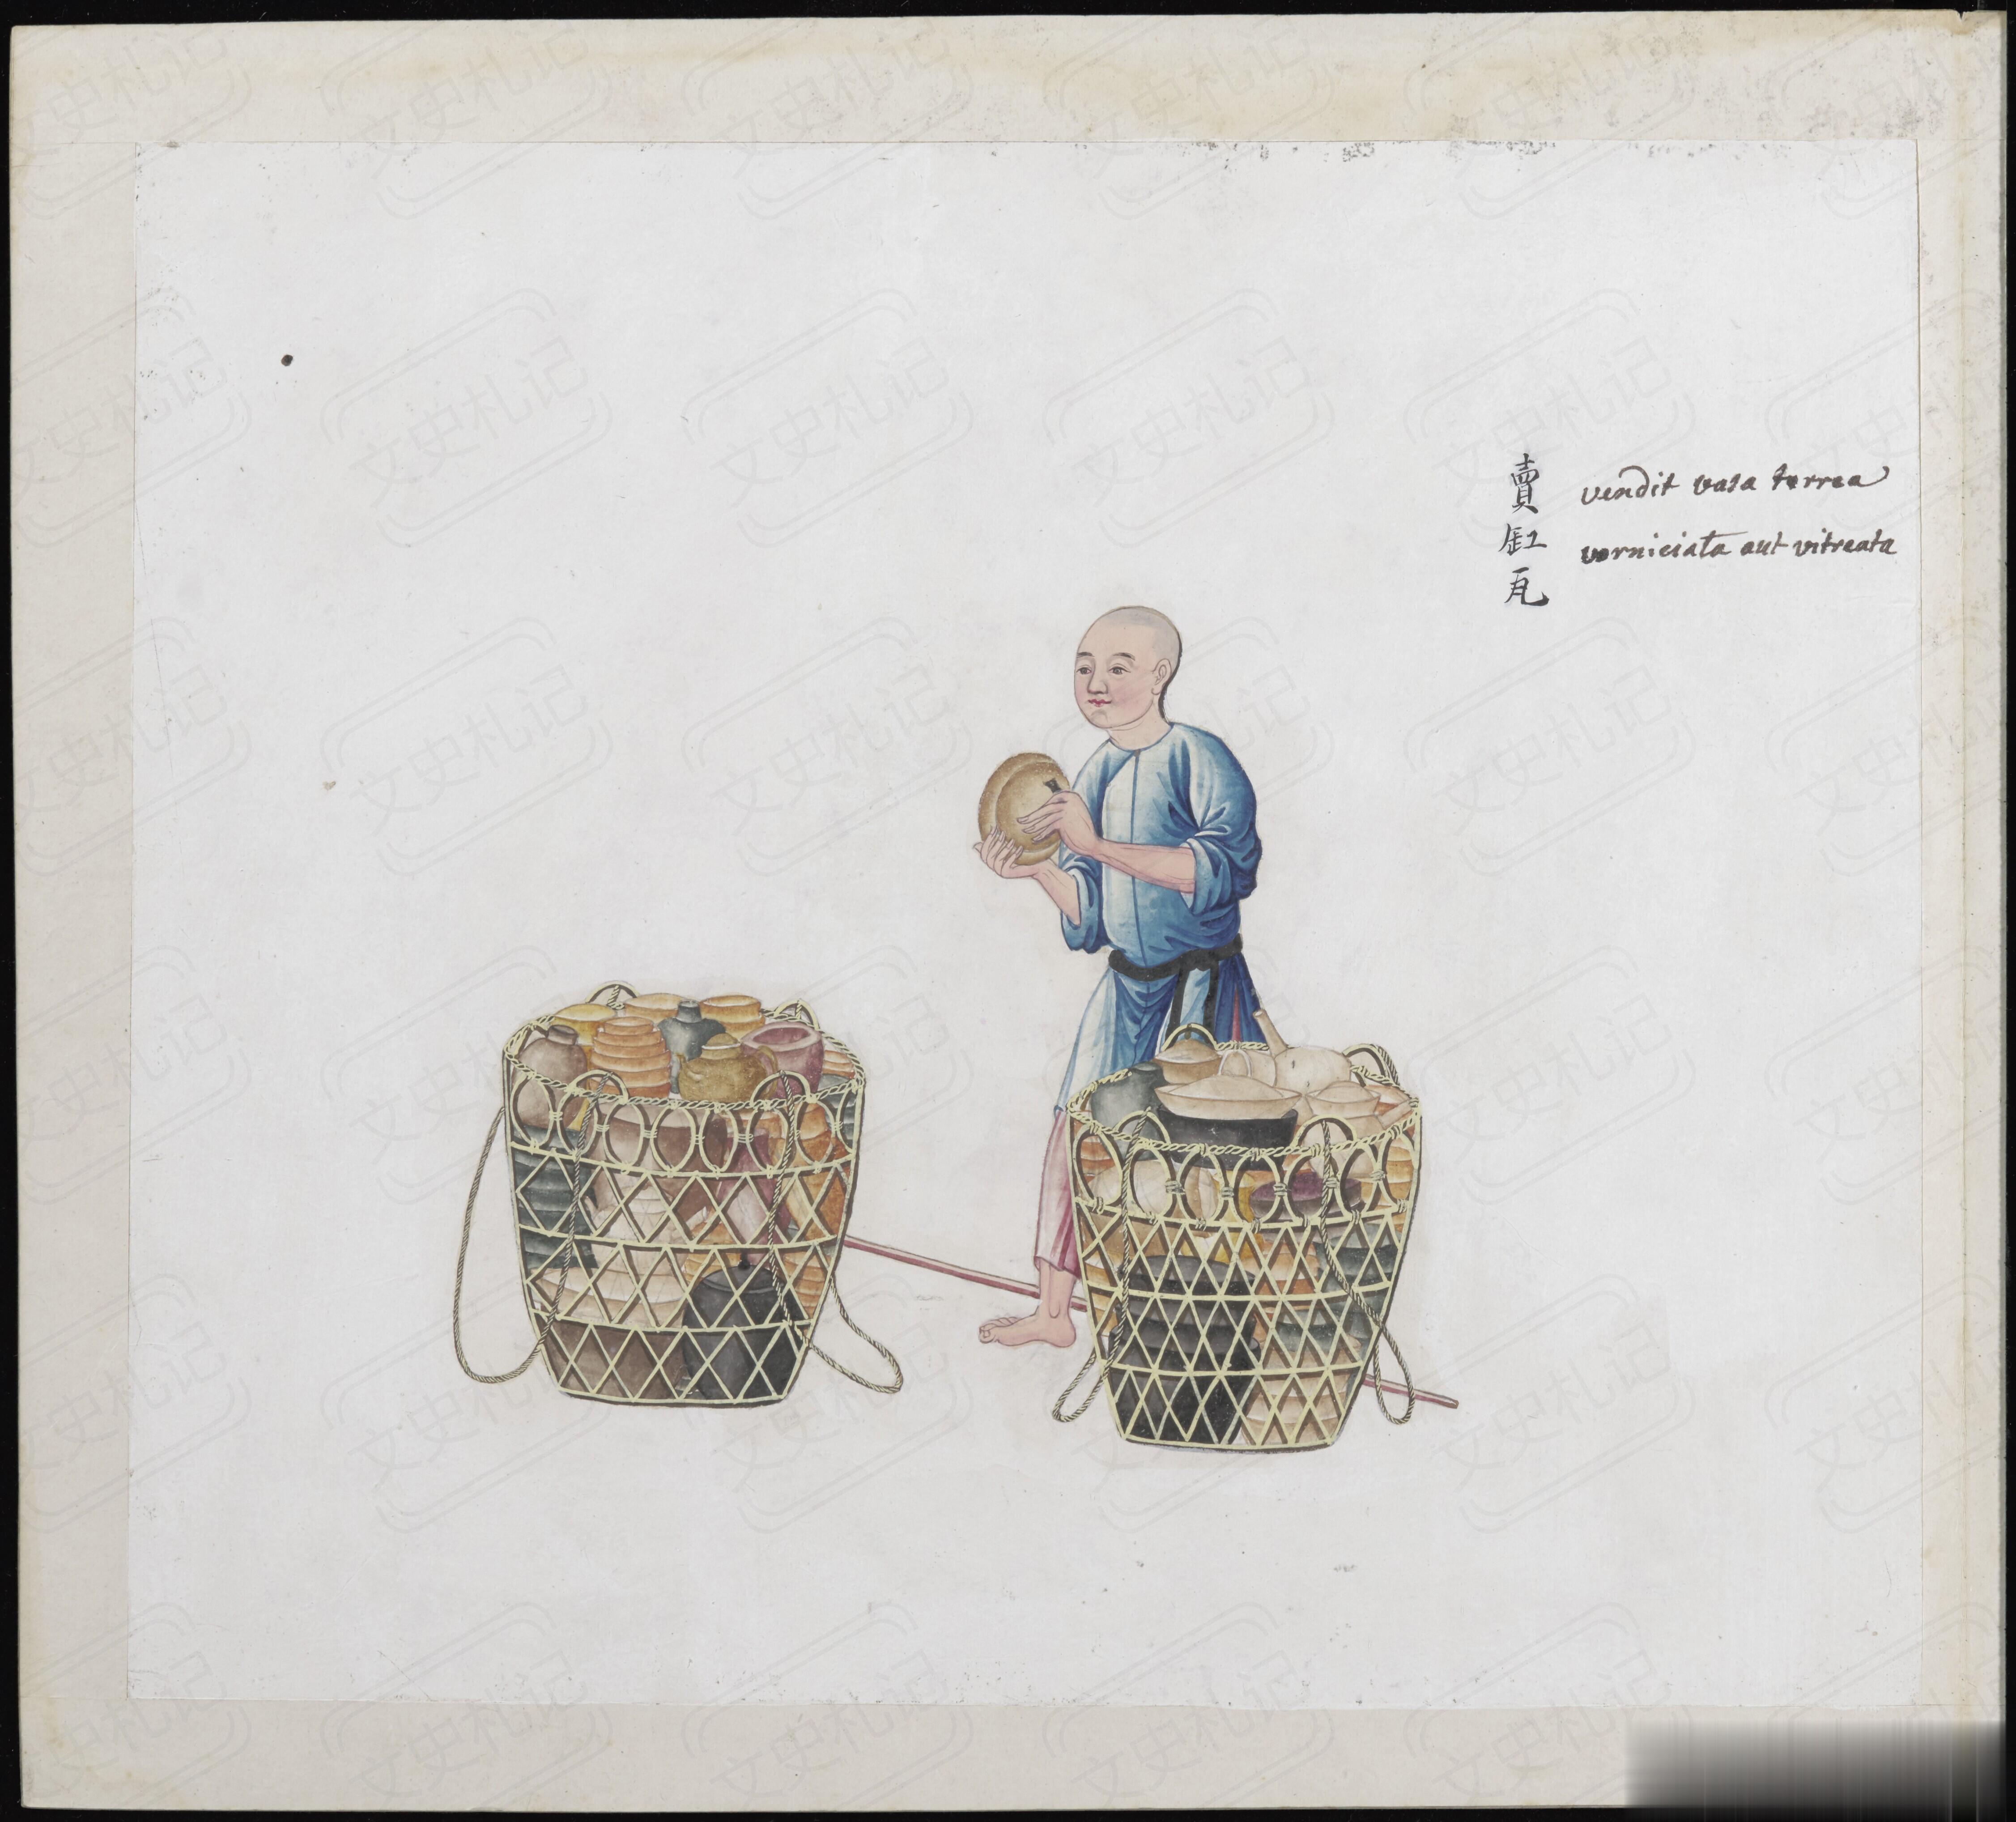 賣缸瓦
vendit vasa terrea
verniciata aut vitreata
文史札记